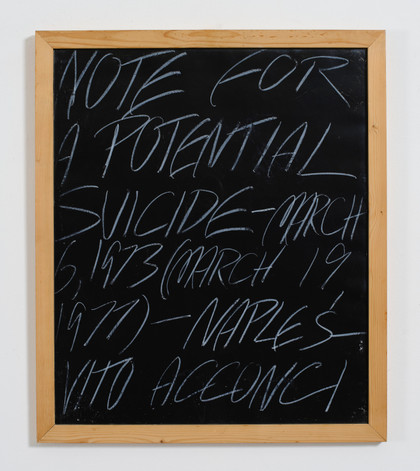 NOTE FOR
A POTENTIAL
SUICIDE - (MARCH
6, 1973 (MARCH 19
1977) - NAPLES
VITO ACCONCI